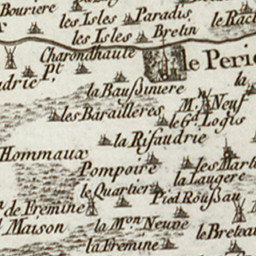 Bouriere
les Isles
Paradis
le Racl
les Isles
Bretin
Charondhaute
le Perie
udrie Pt
la
la Baussiniere
les Baraillères
M. Neuf
le Gd. Logis
la Rifaudrie
Hommaux
Pompoire
les Marti
la Laugere
le Quartier
Pied Roussau
t. de Fremine
Maison
la Mon Neuve
le Bretea
la Fremine